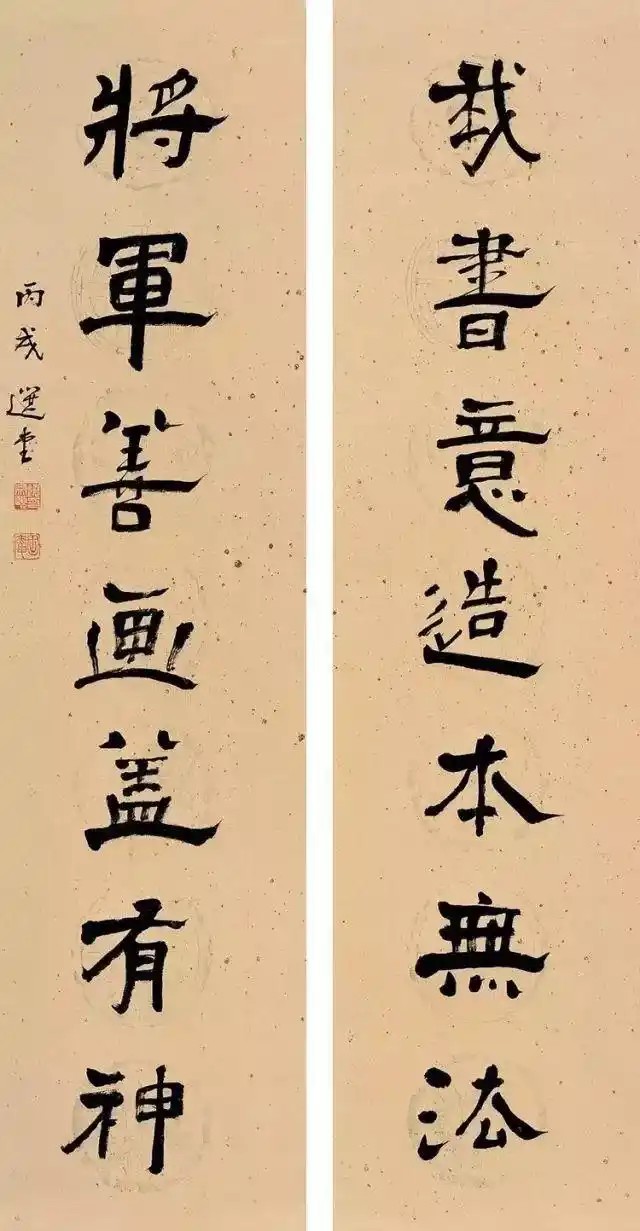 我書意造本無法
將軍善画蓋有神
丙戌選堂